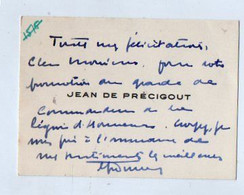 Toutes mes félicitations,
Cher Monsieur, pour votre
promotion au grade de
JEAN DE PRÉCIGOUT
Commandeur de la
Légion d'Honneur. Croyez, je
vous prie à l'assurance de
mes sentiments les meilleurs